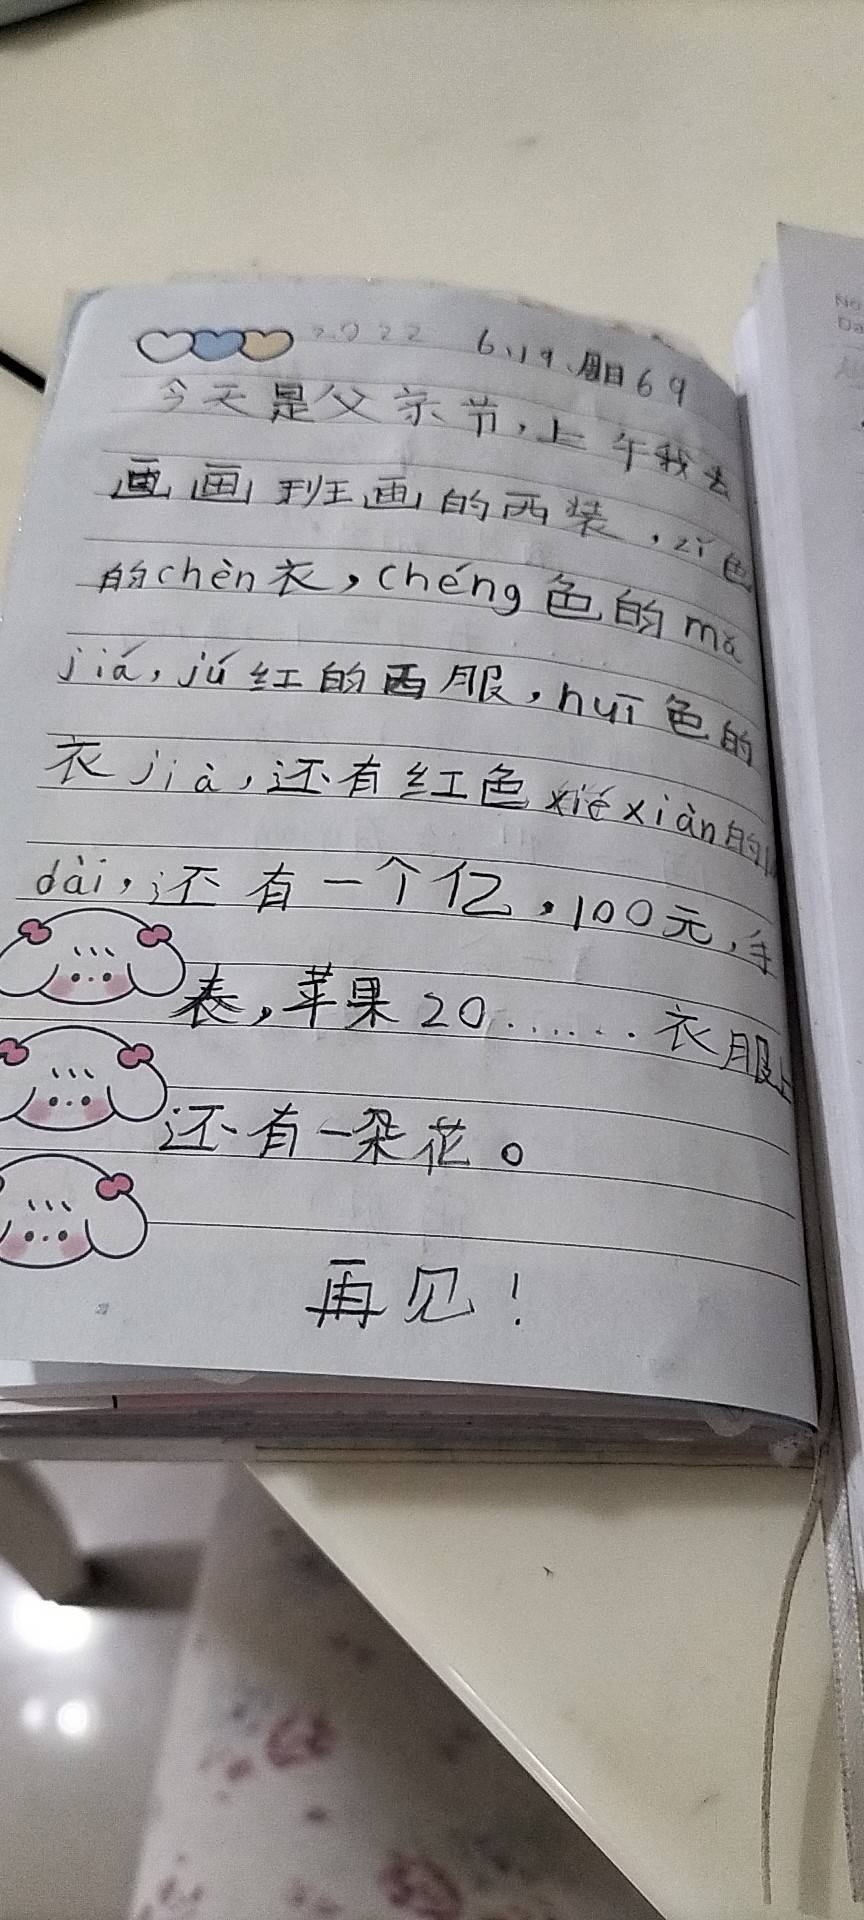 2022 6、19、周日69
今天是父亲节，上午我去
画画班画的西装，zǐ色
的chèn衣，chéng色的mǎ
jiá，jú红的西服，huī色的
衣jià，还有红色xiéxiàn的
dài，还有一个亿，100元，手
表，苹果20......衣服上
还有一朵花。
再见！